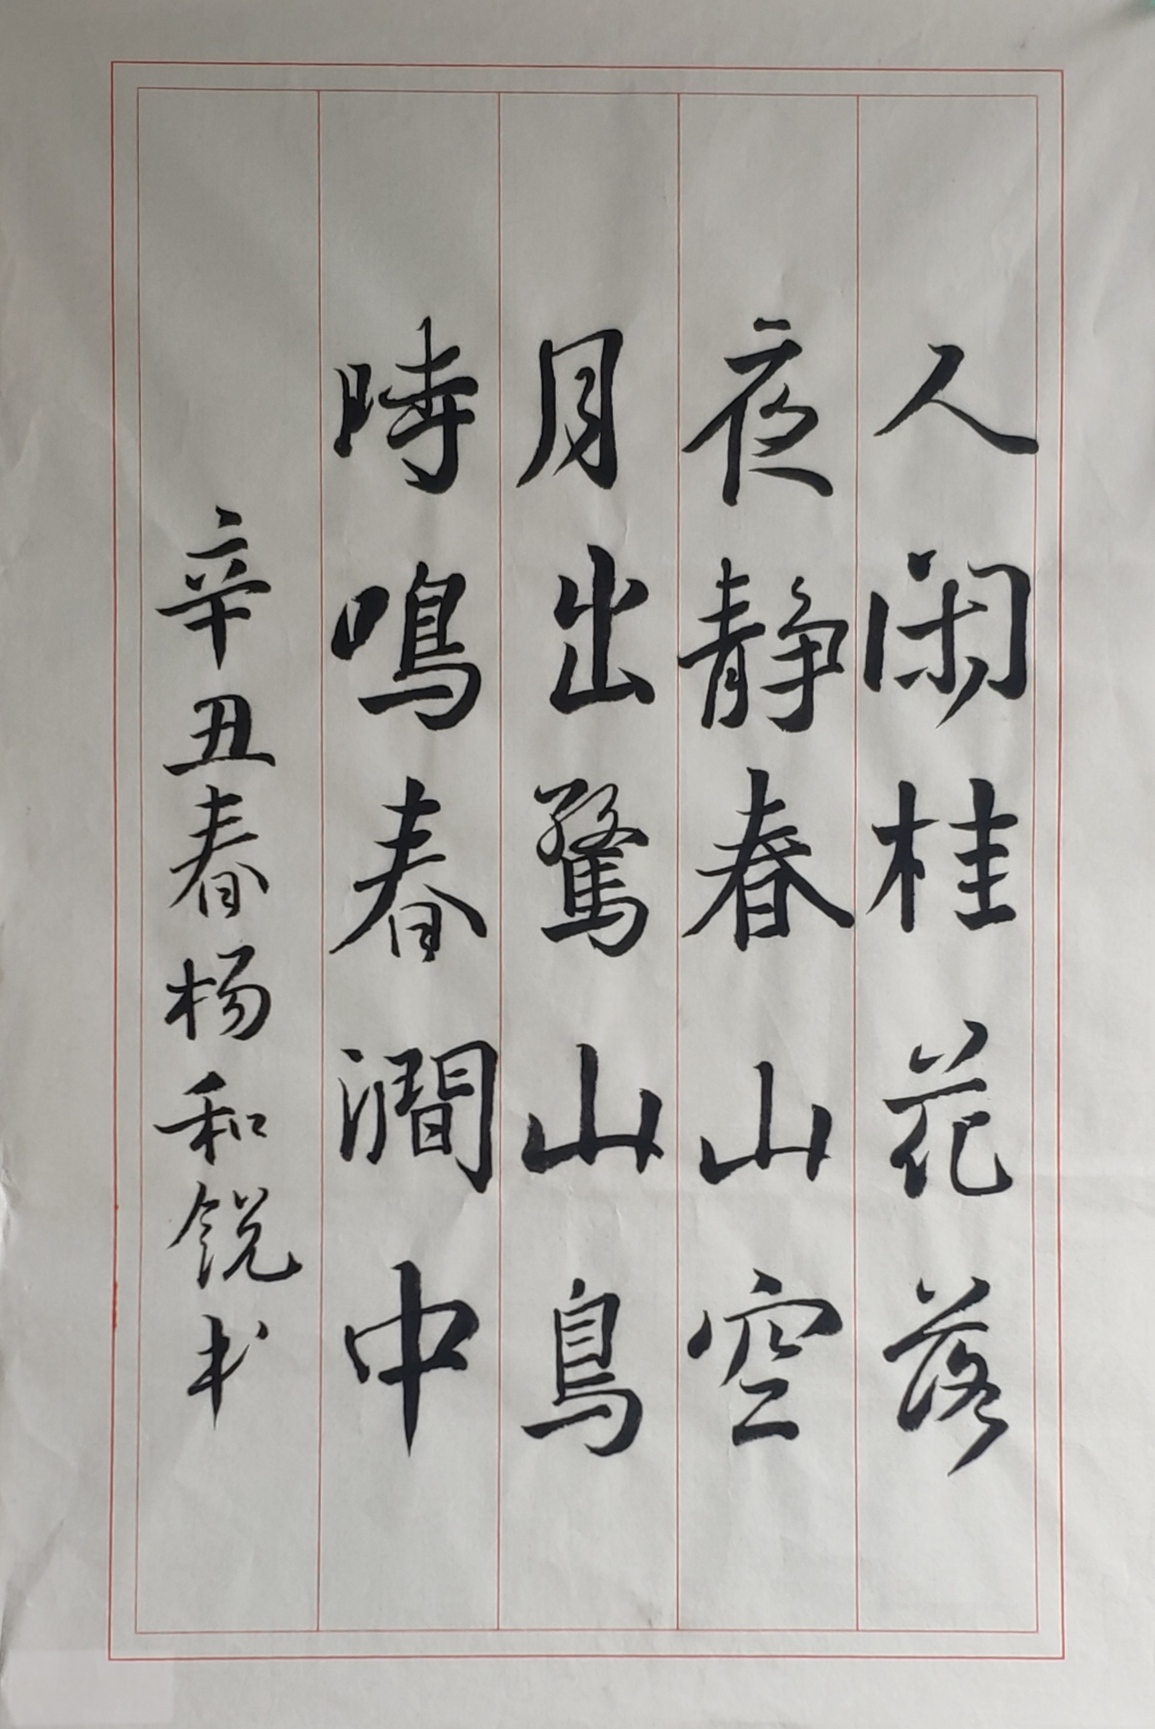 人闲桂花落
夜静春山空
月出驚山鳥
時鳴春澗中
辛丑春杨和锐书